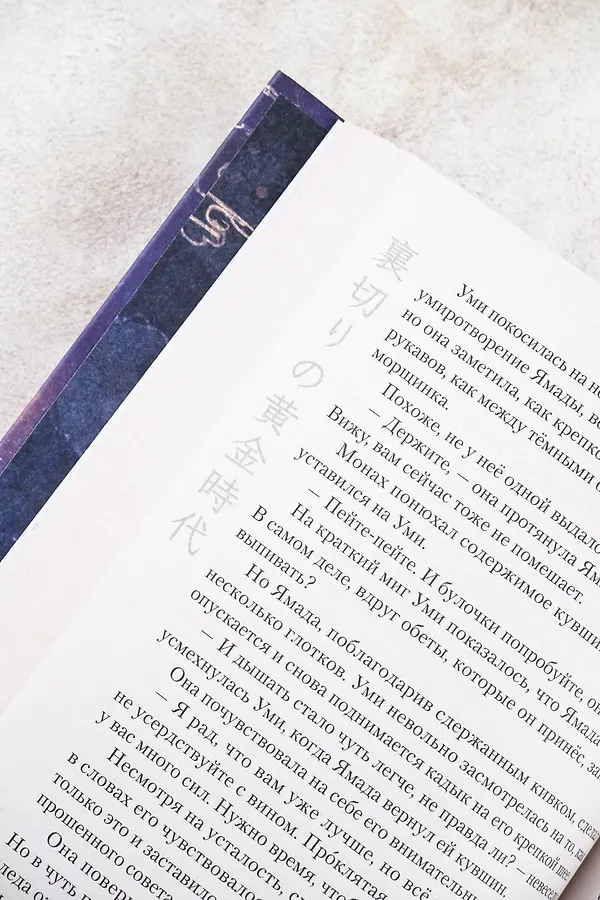 裏切りの黄金時代
Уми покосилась на
умиротворение Ямады, вс
но она заметила, как крепко
рукавов, как между тёмными
морщинка.
Похоже, не у неё одной выдало
– Держите, – она протянула Ям
Вижу, вам сейчас тоже не помешает.
Монах понюхал содержимое кувши
уставился на Уми.
– Пейте-пейте. И булочки попробуйте, он
На краткий миг Уми показалось, что Ямада
В самом деле, вдруг обеты, которые он принёс, зап
выпивать?
Но Ямада, поблагодарив сдержанным кивком, сдела
несколько глотков. Уми невольно засмотрелась на то, как
опускается и снова поднимается кадык на его крепкой шее
– И дышать стало чуть легче, не правда ли? – невесел
усмехнулась Уми, когда Ямада вернул ей кувшин.
Она почувствовала на себе его внимательны
– Я рад, что вам уже лучше, но всё
не усердствуйте с вином. Проклятая
у вас много сил. Нужно время, чтоб
Несмотря на усталость,
в словах его чувствовало
только это и заставил
прошенного совета
Она поверн
Но в чуть
следа